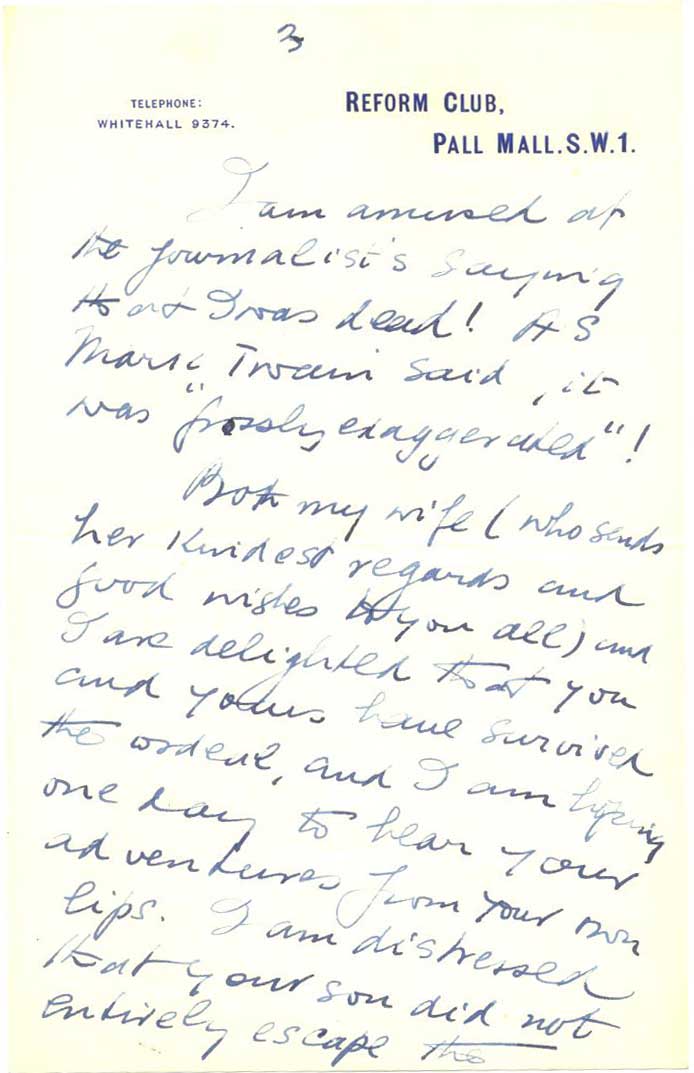 3
TELEPHONE:
WHITEHALL 9374.
REFORM CLUB,
PALL MALL. S.W.1.
I am amused at
the journalist's saying
that I was dead! As
Mark Twain said, it
was "grossly exaggerated"!
Both my wife (who sends
her kindest regards and
good wishes to you all) and
I are delighted that you
and yours have survived
the ordeal, and I am hoping
one day to hear your
adventures from your own
lips. I am distressed
that your son did not
entirely escape the